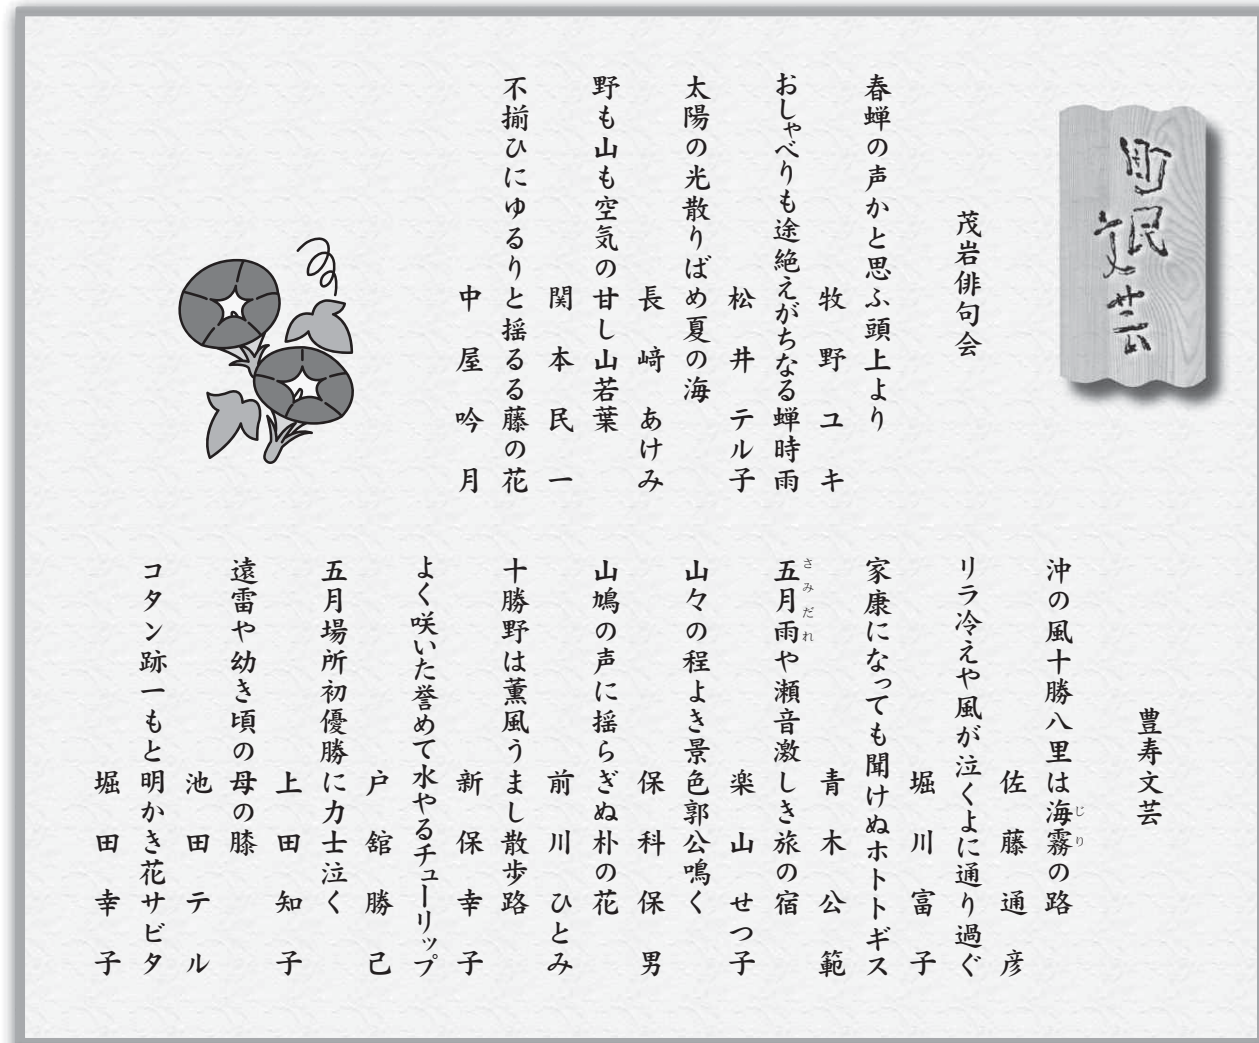 町民文芸
茂岩俳句会
春蝉の声かと思ふ頭上より
牧野ユキ
おしゃべりも途絶えがちなる蝉時雨
松井テル子
太陽の光散りばめ夏の海
長崎あけみ
野も山も空気の甘し山若葉
関本民一
不揃ひにゆるりと揺るる藤の花
中屋吟月
豊寿文芸
沖の風十勝八里は海霧の路
じり
佐藤通彦
リラ冷えや風が泣くよに通り過ぐ
堀川富子
家康になっても聞けぬホトトギス
青木公範
五月雨や瀬音激しき旅の宿
さみだれ
楽山せつ子
山々の程よき景色郭公鳴く
保科保男
山鳩の声に揺らぎぬ朴の花
前川ひとみ
十勝野は薫風うまし散歩路
新保幸子
よく咲いた誉めて水やるチューリップ
戸舘勝己
五月場所初優勝に力士泣く
上田知子
遠雷や幼き頃の母の膝
池田テル
コタン跡一もと明かき花サビタ
堀田幸子